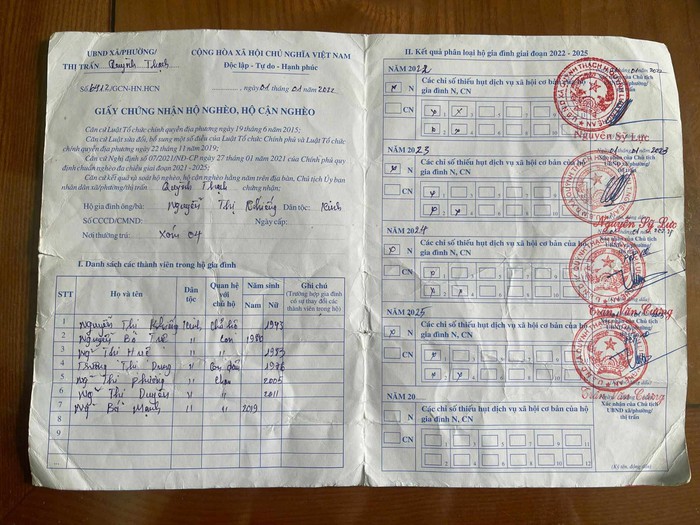 UBND XÃ/PHƯỜNG/
THỊ TRẤN Quỳnh Thạch
CỘNG HÒA XÃ HỘI CHỦ NGHĨA VIỆT NAM
Độc lập - Tự do - Hạnh phúc
Số 6912/GCN-HN.HCN
, ngày 01 tháng 01 năm 2022
GIẤY CHỨNG NHẬN HỘ NGHÈO, HỘ CẬN NGHÈO
Căn cứ Luật Tổ chức chính quyền địa phương ngày 19 tháng 6 năm 2015;
Căn cứ Luật sửa đổi, bổ sung một số điều của Luật Tổ chức Chính phủ và Luật Tổ
chức chính quyền địa phương ngày 22 tháng 11 năm 2019;
Căn cứ Nghị định số 07/2021/NĐ-CP ngày 27 tháng 01 năm 2021 của Chính phủ quy
định chuẩn nghèo đa chiều giai đoạn 2021 - 2025;
Căn cứ kết quả rà soát hộ nghèo, hộ cận nghèo hằng năm trên địa bàn, Chủ tịch Ủy ban
nhân dân xã/phường/thị trấn Quỳnh Thạch chứng nhận:
Hộ gia đình ông/bà: Nguyễn Thị Khuống Dân tộc: Kinh
Số CCCD/CMND: Ngày cấp:
Nơi thường trú: Xóm 04
I. Danh sách các thành viên trong hộ gia đình
STT Họ và tên Dân tộc Quan hệ với chủ hộ Năm sinh Nam Nữ Ghi chú
(Trường hợp gia đình có sự thay đổi các thành viên trong hộ)
1 Nguyễn Thị Khuống Kinh Chủ hộ 1943
2 Nguyễn Bá Con 1980
3 Ng Thị Huê " " 1983
4 Trương Thị Dung " Con dâu 1976
5 Ng Thị Phương " Cháu 2005
6 Ng Thị Duyên " " 2011
7 Ng Bá Mạnh " " 2019
8
9
II. Kết quả phân loại hộ gia đình giai đoạn 2022 - 2025
NĂM 2022
01 năm 2022
N
CN
Các chỉ số thiếu hụt dịch vụ xã hội cơ bản của hộ
gia đình N, CN
Xác nhận của Chủ tịch
Nguyễn Sỹ Lực
NĂM 2023
01 năm 2023
N
CN
Các chỉ số thiếu hụt dịch vụ xã hội cơ bản của hộ
gia đình N, CN
Xác nhận của Chủ tịch
UBND xã/phường/
thị trấn
Nguyễn Sỹ Lực
NĂM 2024
N
CN
Các chỉ số thiếu hụt dịch vụ xã hội cơ bản của hộ
gia đình N, CN
Xác nhận của Chủ tịch
UBND xã/phường/
Trần Văn Cường
NĂM 2025
N
CN
Các chỉ số thiếu hụt dịch vụ xã hội cơ bản của hộ
gia đình N, CN
Trần Văn Cường
NĂM 20
N
CN
Các chỉ số thiếu hụt dịch vụ xã hội cơ bản của hộ
gia đình N, CN
Xác nhận của Chủ tịch
UBND xã/phường/
thị trấn
(Ký tên, đóng dấu)